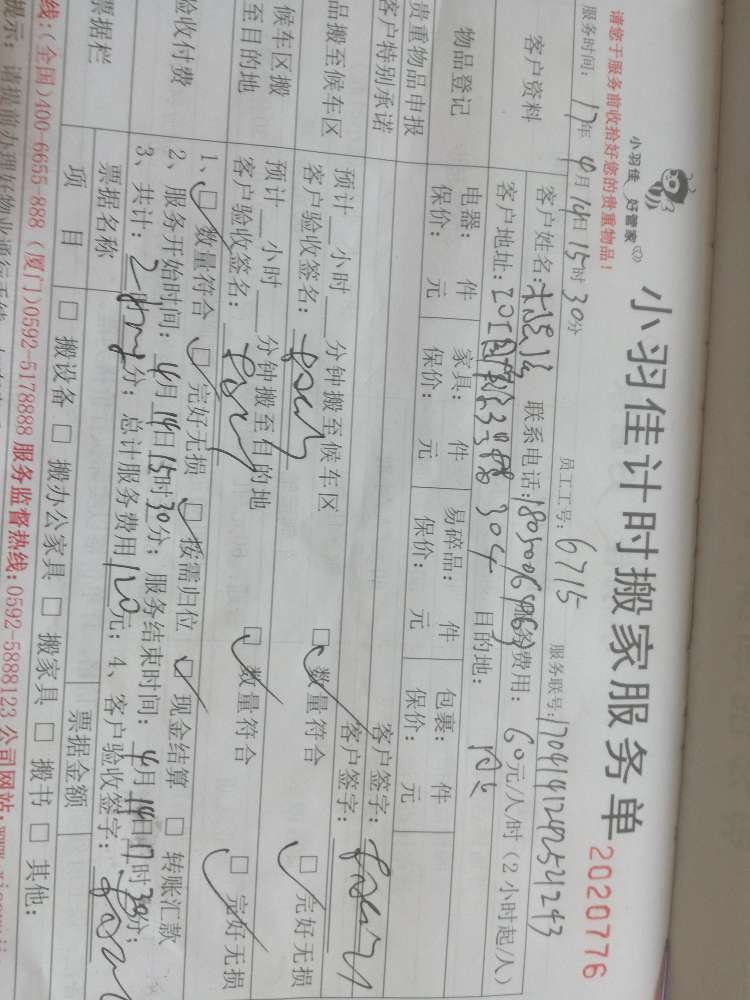 小羽佳 好管家
小羽佳计时搬家服务单
2020776
请您于服务前收拾好您的贵重物品!
服务时间: 17年4月14日15时30分 员工工号: 6715 服务联号: 170414124254243
客户资料
客户姓名: 联系电话: 服务费用: 60元/人/时(2小时起/人)
客户地址: 304 目的地:
物品登记
电器: 件 家具: 件 易碎品: 件 包裹: 件
保价: 元 保价: 元 保价: 元 保价: 元
贵重物品申报 客户签字:
客户特别承诺 客户签字:
品搬至候车区
预计__小时__分钟搬至候车区 数量符合 完好无损
客户验收签名:
候车区搬
至目的地
预计__小时__分钟搬至目的地 数量符合 完好无损
客户验收签名:
验收付费
1、□ 数量符合 □ 完好无损 □ 按需归位 □ 现金结算 □ 转账汇款
2、服务开始时间: 4月14日15时30分; 服务结束时间: 4月14日17时30分;
3、共计: 分; 总计服务费用120元; 4、客户验收签字:
票据栏
票据名称 票据金额
项 目 □ 搬设备 □ 搬办公家具 □ 搬家具 □ 搬书 □ 其他:
线:(全国)400-6655-888 (厦门)0592-5178888 服务监督热线:0592-5888123 公司网站:
提示: 请提前办理好物业通行手续